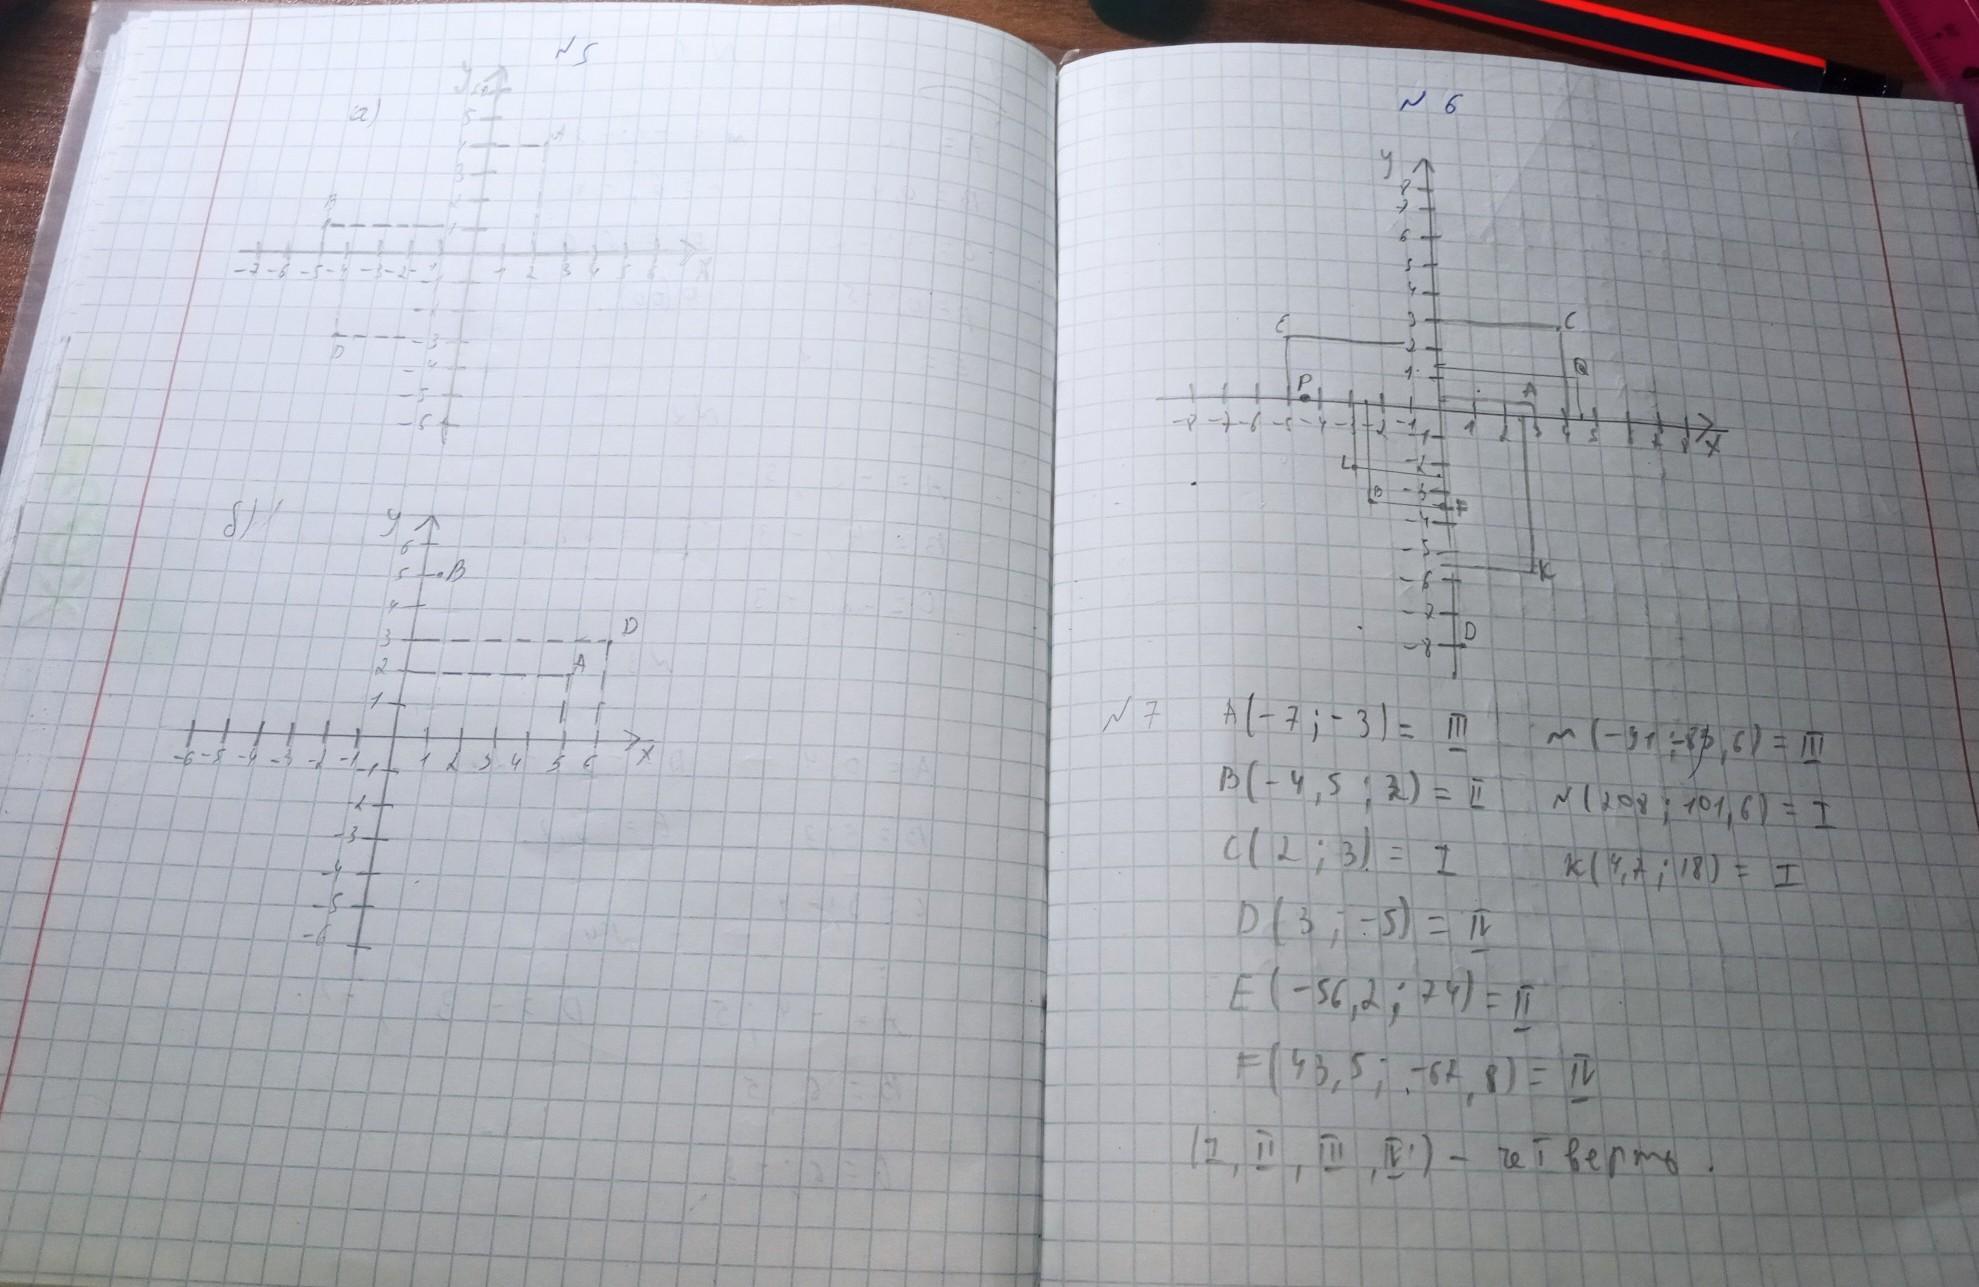 N 5
а)
y
5
4
A
3
B
1
-7 -6 -5 -4 -3 -2 -1 1 2 3 4 5 6 x
-1
-3
D
-4
-5
-6
б)
y
6
5 B
4
3 D
2 A
1
-6 -5 -4 -3 -2 -1 1 2 3 4 5 6 x
-1
-2
-3
-4
-5
-6
N 6
y
8
7
6
5
4
3 C
E 2
1 Q
P A
-8 -7 -6 -5 -4 -3 -2 -1 1 2 3 4 5 7 8 x
-1
L -2
B -3
F
-4
-5
K
-6
-7
D
-8
N 7 A(-7; -3) = III M(-91; ,6) = III
B(-4,5; ) = II N(208; 101,6) = I
C(2; 3) = I K(4,7; 18) = I
D(3; -5) = IV
E(-56,2; 74) = II
F(43,5; -67,8) = IV
(I, II, III, IV) - четверть.